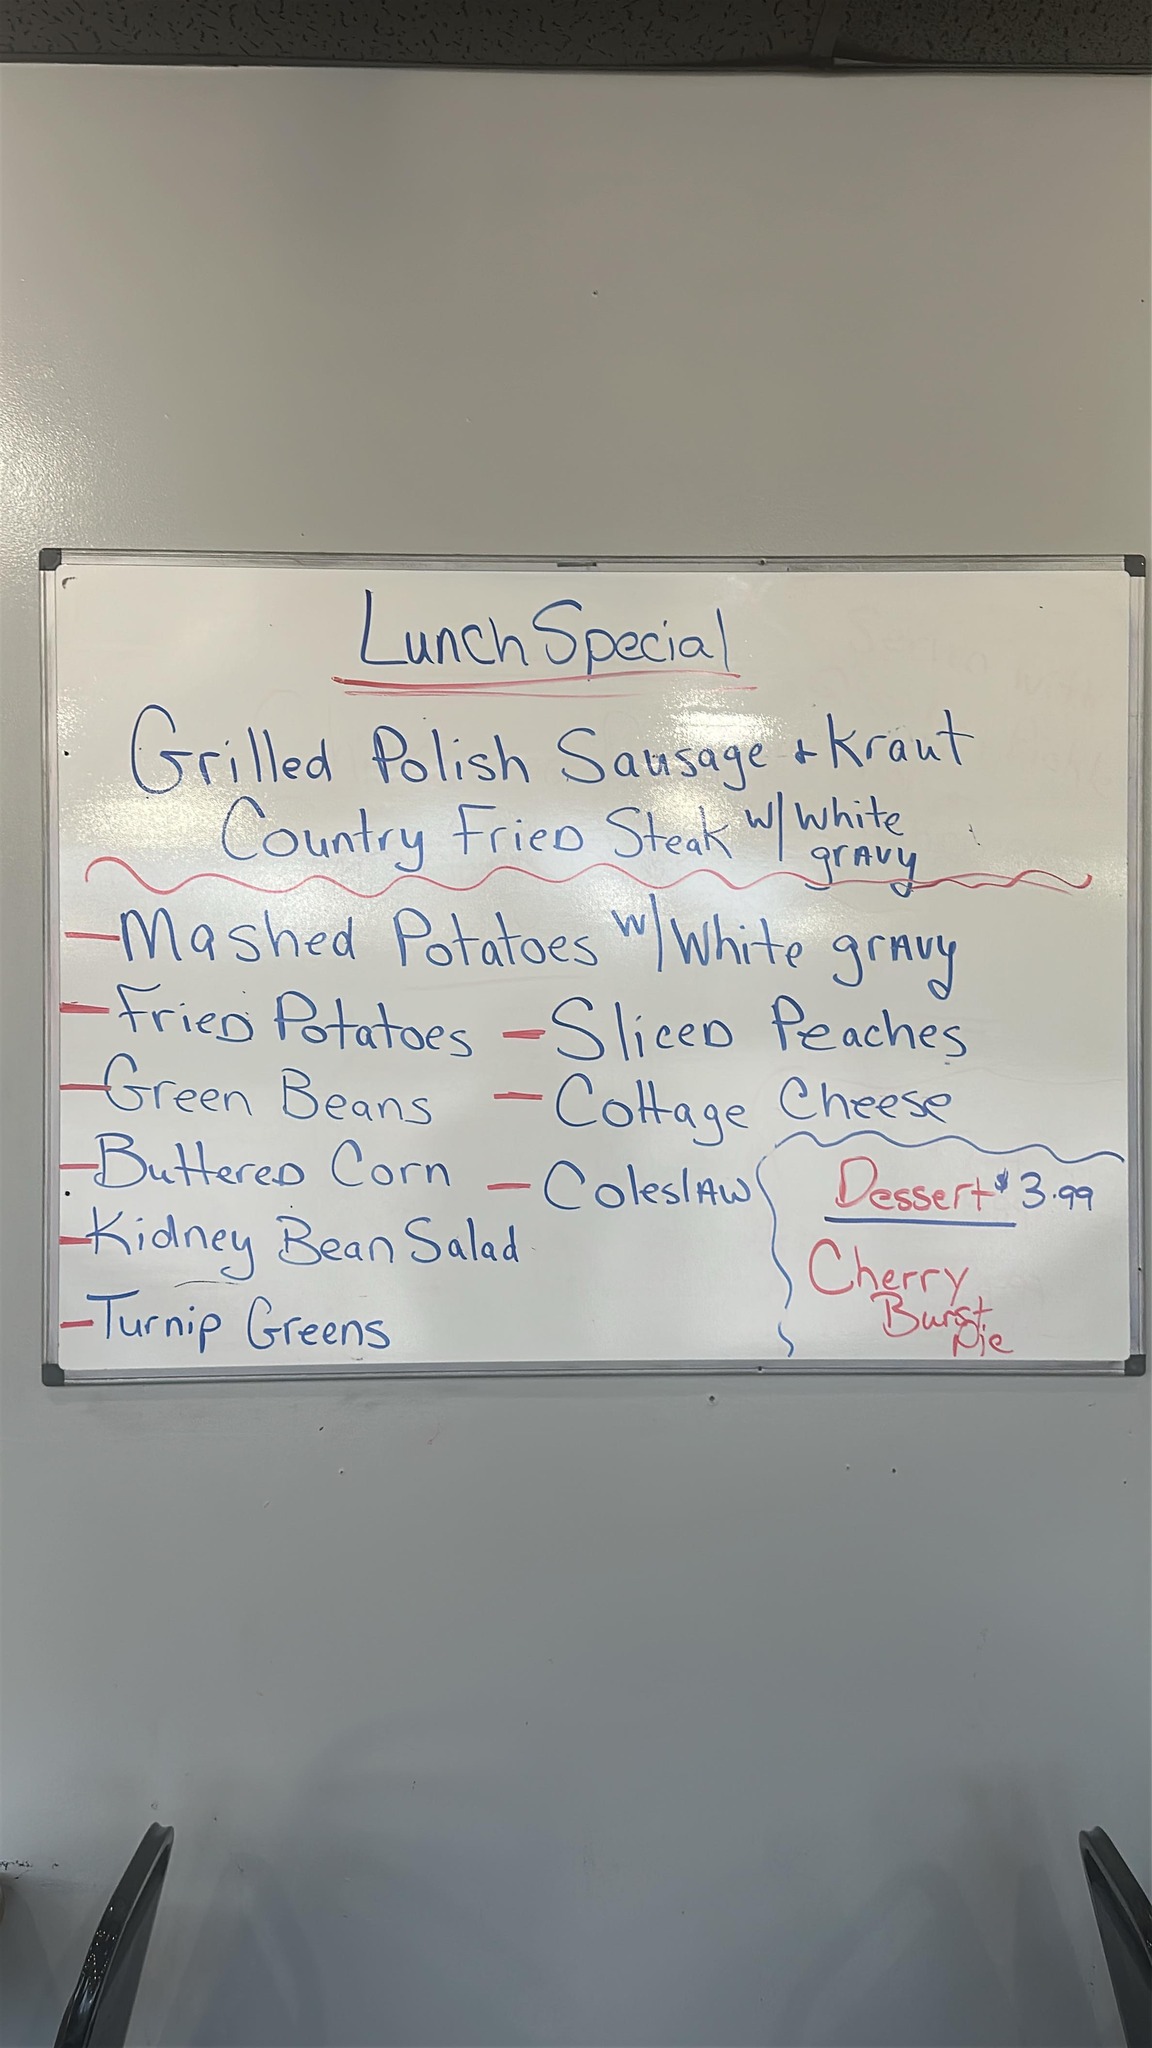 Lunch Special
Grilled Polish Sausage + Kraut
Country Fried Steak w/ White
gravy
- Mashed Potatoes w/ White gravy
- Fried Potatoes - Sliced Peaches
- Green Beans - Cottage Cheese
- Buttered Corn - Coleslaw
- Kidney Bean Salad
- Turnip Greens
Dessert $3.99
Cherry
Burst
Pie